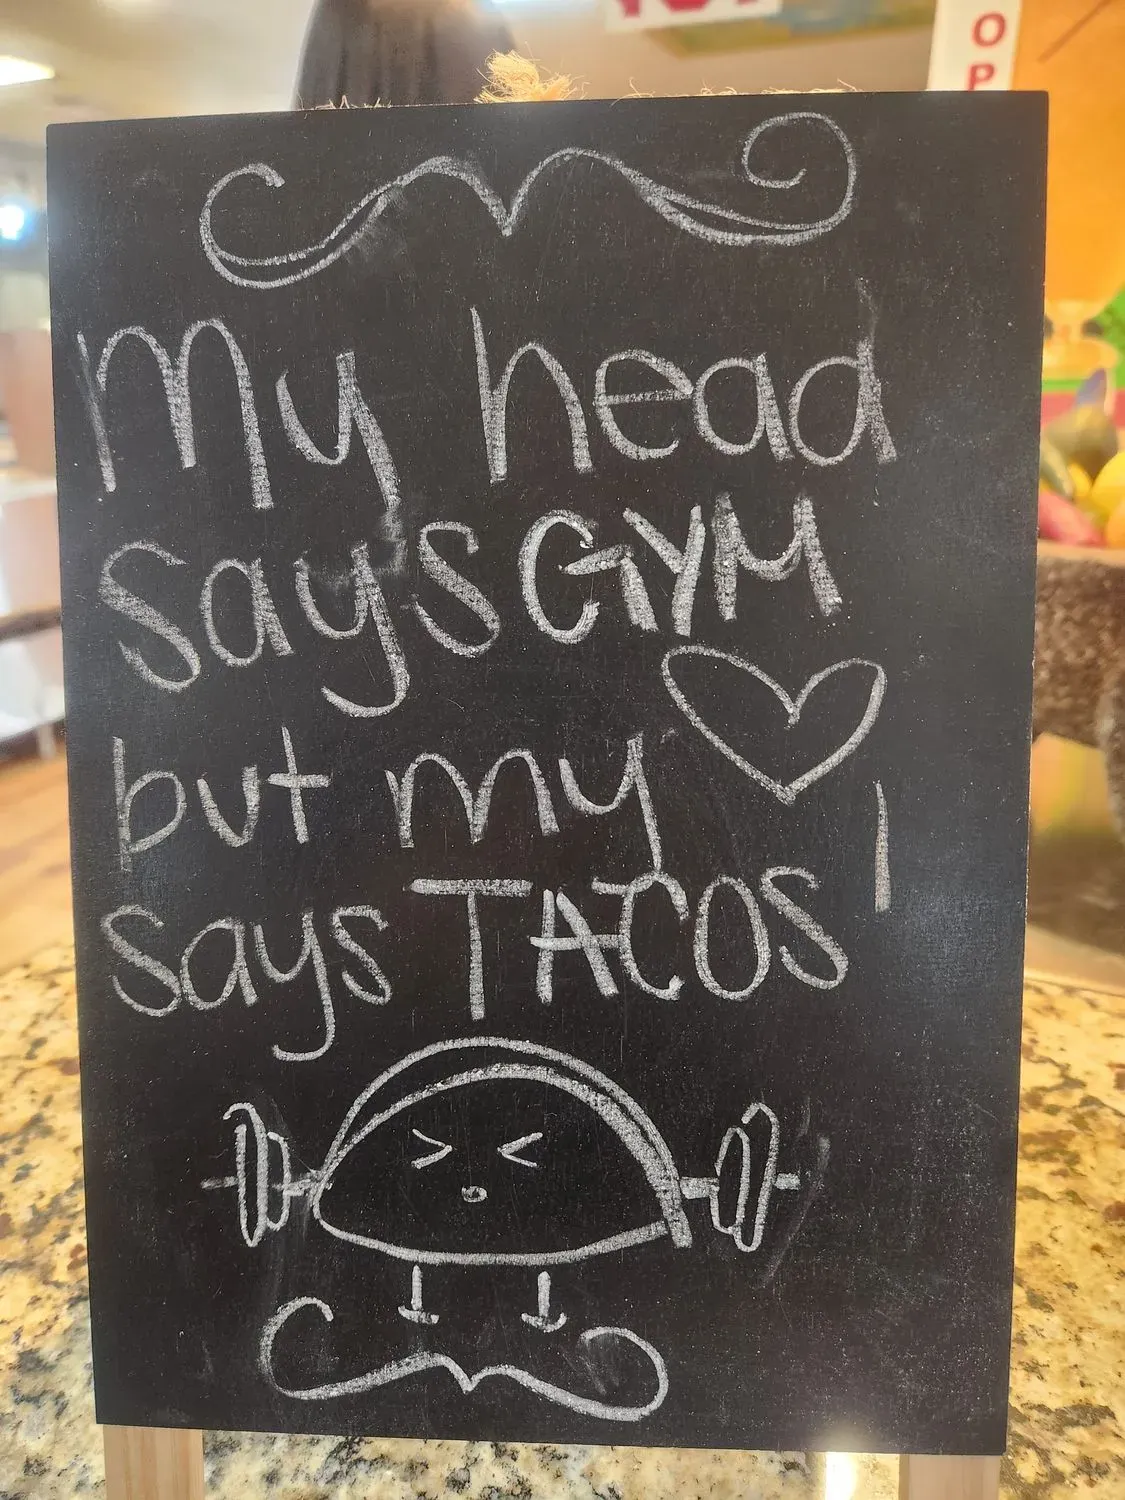 My head
says GYM
but my ♡
says TACOS
OP